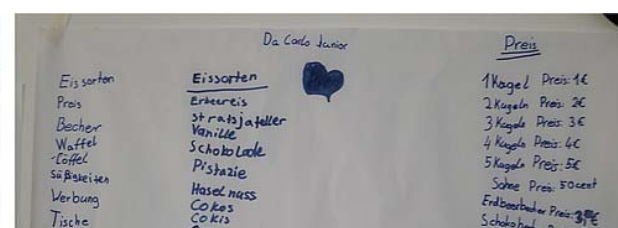 Da Carlo Junior
Eissorten
Preis
Becher
Waffel
Löffel
Süßigkeiten
Werbung
Tische
Eissorten
Erbeereis
Stratsjateller
Vanille
Schokolade
Pistazie
Haselnuss
Cokos
Cokis
Preis
1 Kugel Preis: 1€
2 Kugeln Preis: 2€
3 Kugeln Preis: 3€
4 Kugeln Preis: 4€
5 Kugeln Preis: 5€
Sahne Preis: 50cent
Erdbeerbecher Preis: